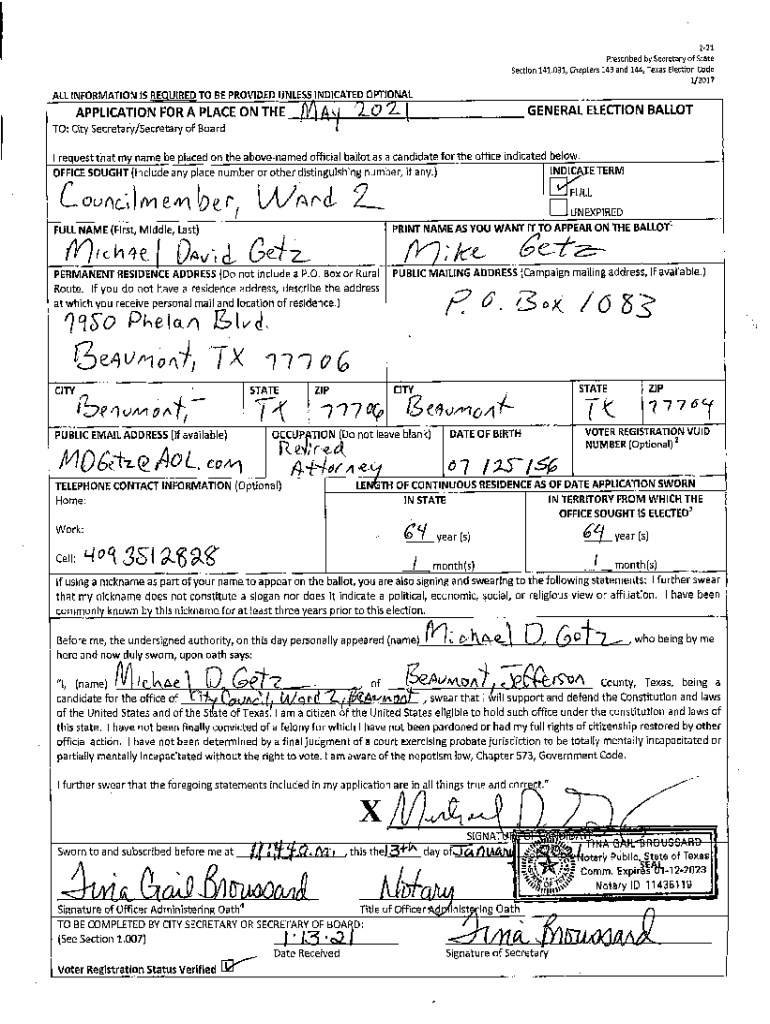 2-21
Prescribed by Secretary of State
Section 141.031, Chapters 143 and 144, Texas Election Code
1/2017
ALL INFORMATION IS REQUIRED TO BE PROVIDED UNLESS INDICATED OPTIONAL
APPLICATION FOR A PLACE ON THE MAy 2021 GENERAL ELECTION BALLOT
TO: City Secretary/Secretary of Board
I request that my name be placed on the above-named official ballot as a candidate for the office indicated below.
OFFICE SOUGHT (Include any place number or other distinguishing number, if any.) INDICATE TERM
Councilmember, Ward 2 FULL
UNEXPIRED
FULL NAME (First, Middle, Last) PRINT NAME AS YOU WANT IT TO APPEAR ON THE BALLOT
Michael David Getz Mike Getz
PERMANENT RESIDENCE ADDRESS (Do not include a P.O. Box or Rural PUBLIC MAILING ADDRESS (Campaign mailing address, if available.)
Route. If you do not have a residence address, describe the address
at which you receive personal mail and location of residence.)
7950 Phelan Blvd. P.O. Box 1083
Beaumont, TX 77706
CITY STATE ZIP CITY STATE ZIP
Beaumont, TX 77706 Beaumont TX 77704
PUBLIC EMAIL ADDRESS (If available) OCCUPATION (Do not leave blank) DATE OF BIRTH VOTER REGISTRATION VUID
NUMBER (Optional) 2
MDGetz@AOL.com Retired Attorney 07/25/56
TELEPHONE CONTACT INFORMATION (Optional) LENGTH OF CONTINUOUS RESIDENCE AS OF DATE APPLICATION SWORN
Home: IN STATE IN TERRITORY FROM WHICH THE
OFFICE SOUGHT IS ELECTED3
Work: 64 year (s) 64 year (s)
Cell: 409 3512828 1 month(s) 1 month(s)
If using a nickname as part of your name to appear on the ballot, you are also signing and swearing to the following statements: I further swear
that my nickname does not constitute a slogan nor does it indicate a political, economic, social, or religious view or affiliation. I have been
commonly known by this nickname for at least three years prior to this election.
Before me, the undersigned authority, on this day personally appeared (name) Michael D. Getz, who being by me
here and now duly sworn, upon oath says:
"I, (name) Michael D. Getz, of Beaumont, Jefferson County, Texas, being a
candidate for the office of City Council, Ward 2, Beaumont, swear that I will support and defend the Constitution and laws
of the United States and of the State of Texas. I am a citizen of the United States eligible to hold such office under the constitution and laws of
this state. I have not been finally convicted of a felony for which I have not been pardoned or had my full rights of citizenship restored by other
official action. I have not been determined by a final judgment of a court exercising probate jurisdiction to be totally mentally incapacitated or
partially mentally incapacitated without the right to vote. I am aware of the nepotism law, Chapter 573, Government Code.
I further swear that the foregoing statements included in my application are in all things true and correct."
X Michael D. Getz
SIGNATURE OF CANDIDATE
Sworn to and subscribed before me at 11:44 a.m., this the 13th day of January
TINA GAIL BROUSSARD
Notary Public, State of Texas
SEAL
Comm. Expires 01-12-2023
Notary ID 11436119
Tina Gail Broussard Notary
Signature of Officer Administering Oath4 Title of Officer Administering Oath
TO BE COMPLETED BY CITY SECRETARY OR SECRETARY OF BOARD:
(See Section 1.007) 1·13·21 Tina Broussard
Date Received Signature of Secretary
Voter Registration Status Verified